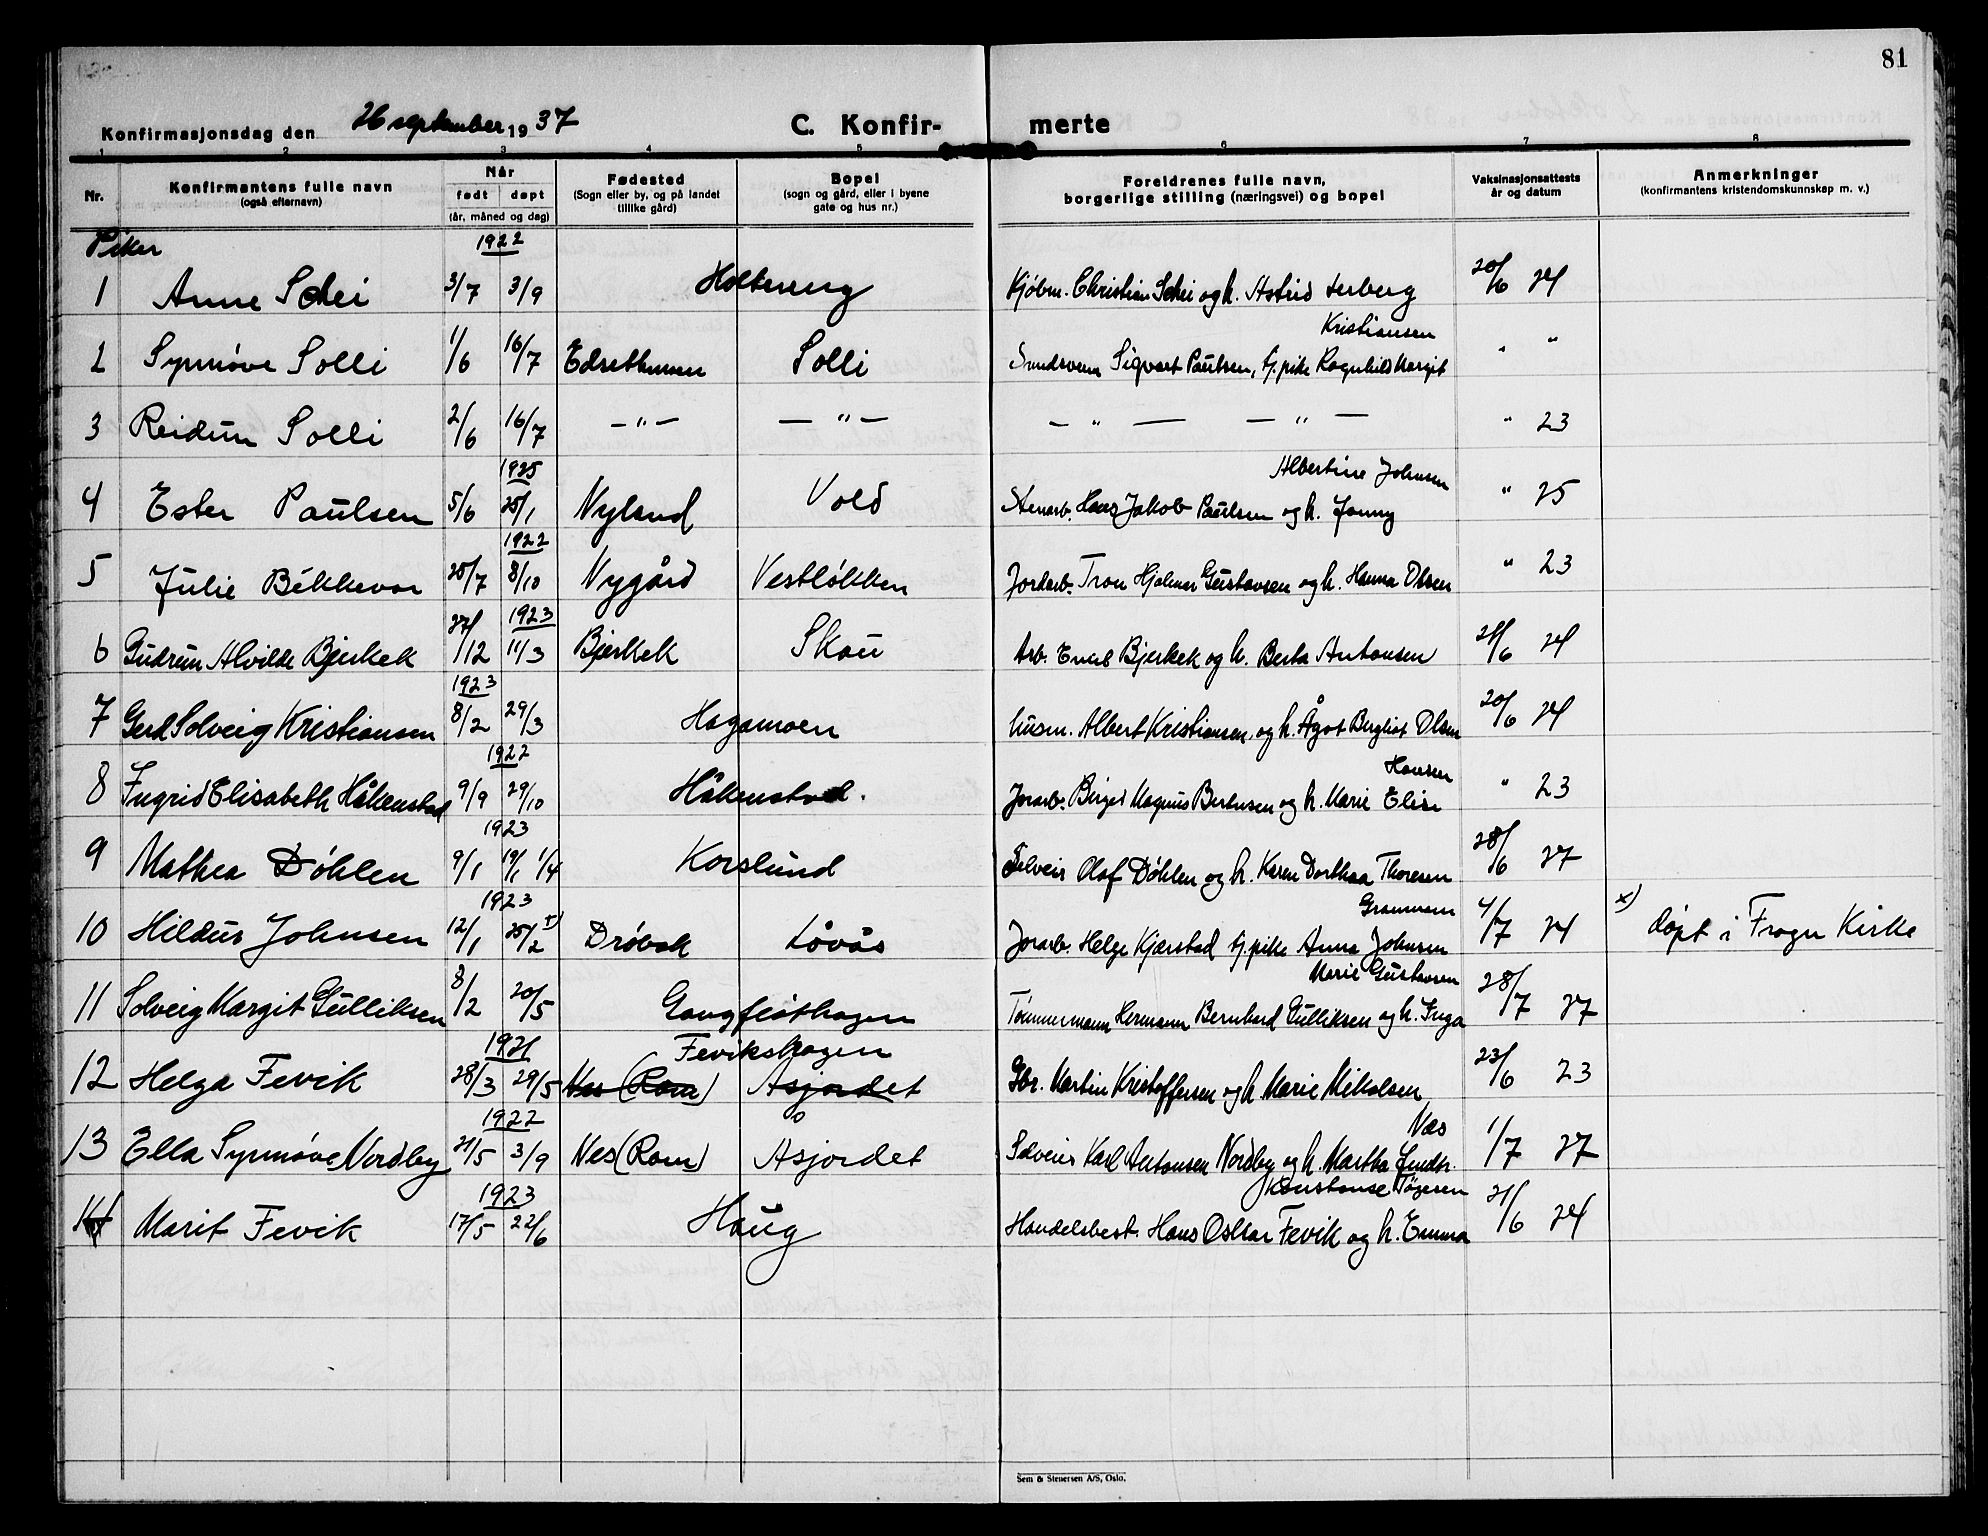 81
Konfirmasjonsdag den 26 september 1937 C. Konfirmerte
1 2 3 4 5 6 7 8
Nr. Konfirmantens fulle navn (også efternavn) Når født døpt (år, måned og dag) Fødested (Sogn eller by, og på landet tillike gård) Bopel (sogn og gård, eller i byene gate og hus nr.) Foreldrenes fulle navn, borgerlige stilling (næringsvei) og bopel Vaksinasjonsattests år og datum Anmerkninger (konfirmantens kristendomskunnskap m. v.)
Piker 1922
1 Anne Schei 3/7 3/9 Holtereng Kjøbm. Christian Schei og h. Astrid Lerberg 20/6 24
Kristiansen
2 Synnøve Solli 1/6 16/7 Edsethunen Solli Sigvart Paulsen, tj.pike Ragnhild Margit " "
3 Reidun Solli 2/6 16/7 — " — — " — — " — — " — " 23
1925 Albertine Johnsen
4 Ester Paulsen 5/6 25/1 Nyland Vold Stenarb. Hans Jakob Paulsen og h. Jenny " 25
1922
5 Julie Bekkevar 25/7 8/10 Nygård Vestløkken Jordarb. Tron Hjalmar Gustavsen og h. Hanna Olsen " 23
1923
6 Gudrun Alvilde Bjerkek 27/12 11/3 Bjerkek Skau Arb. Emil Bjerkek og h. Berta Antonsen 21/6 24
1923
7 Gerd Solveig Kristiansen 8/2 29/3 Hagamoen husm. Albert Kristiansen og h. Ågot Bergliot Olsen 20/6 24
1922 Hansen
8 Ingrid Elisabeth Håkenstad 9/9 29/10 Håkenstad. Jorarb. Birger Magnus Berntsen og h. Marie Elise " 23
1923
9 Mathea Døhlen 9/1 19/1 1/4 Korslund Selveier Olaf Døhlen og h. Karen Dorthea Thoresen 28/6 27
1923
10 Hildur Johnsen 12/1 25/2 x) Drøbak Løvås Jorarb. Helge Kjærstad tj.pike Anna Johnsen 4/7 24 x) døpt i Frogn Kirke
Marie Gustavsen
11 Solveig Margit Gulliksen 8/2 20/5 Gangfløthagen Tømmermann Hermann Bernhard Gulliksen og h. Inga 28/7 27
1921 Fevikshagen
12 Helga Fevik 28/3 29/5 Nes (Ram) Åsjordet Gbr. Martin Kristoffersen og h. Marie Nikolsen 23/6 23
1922 Næs
13 Ella Synnøve Nordby 21/5 3/9 Nes (Ram) Åsjordet Selveier Karl Antonsen Nordby og h. Martha 1/7 27
1923 Konstanse Tøgersen
14 Marit Fevik 17/5 22/6 Haug Handelsbest. Hans Oskar Fevik og h. Emma 21/6 24
Sem & Stenersen A/S, Oslo.